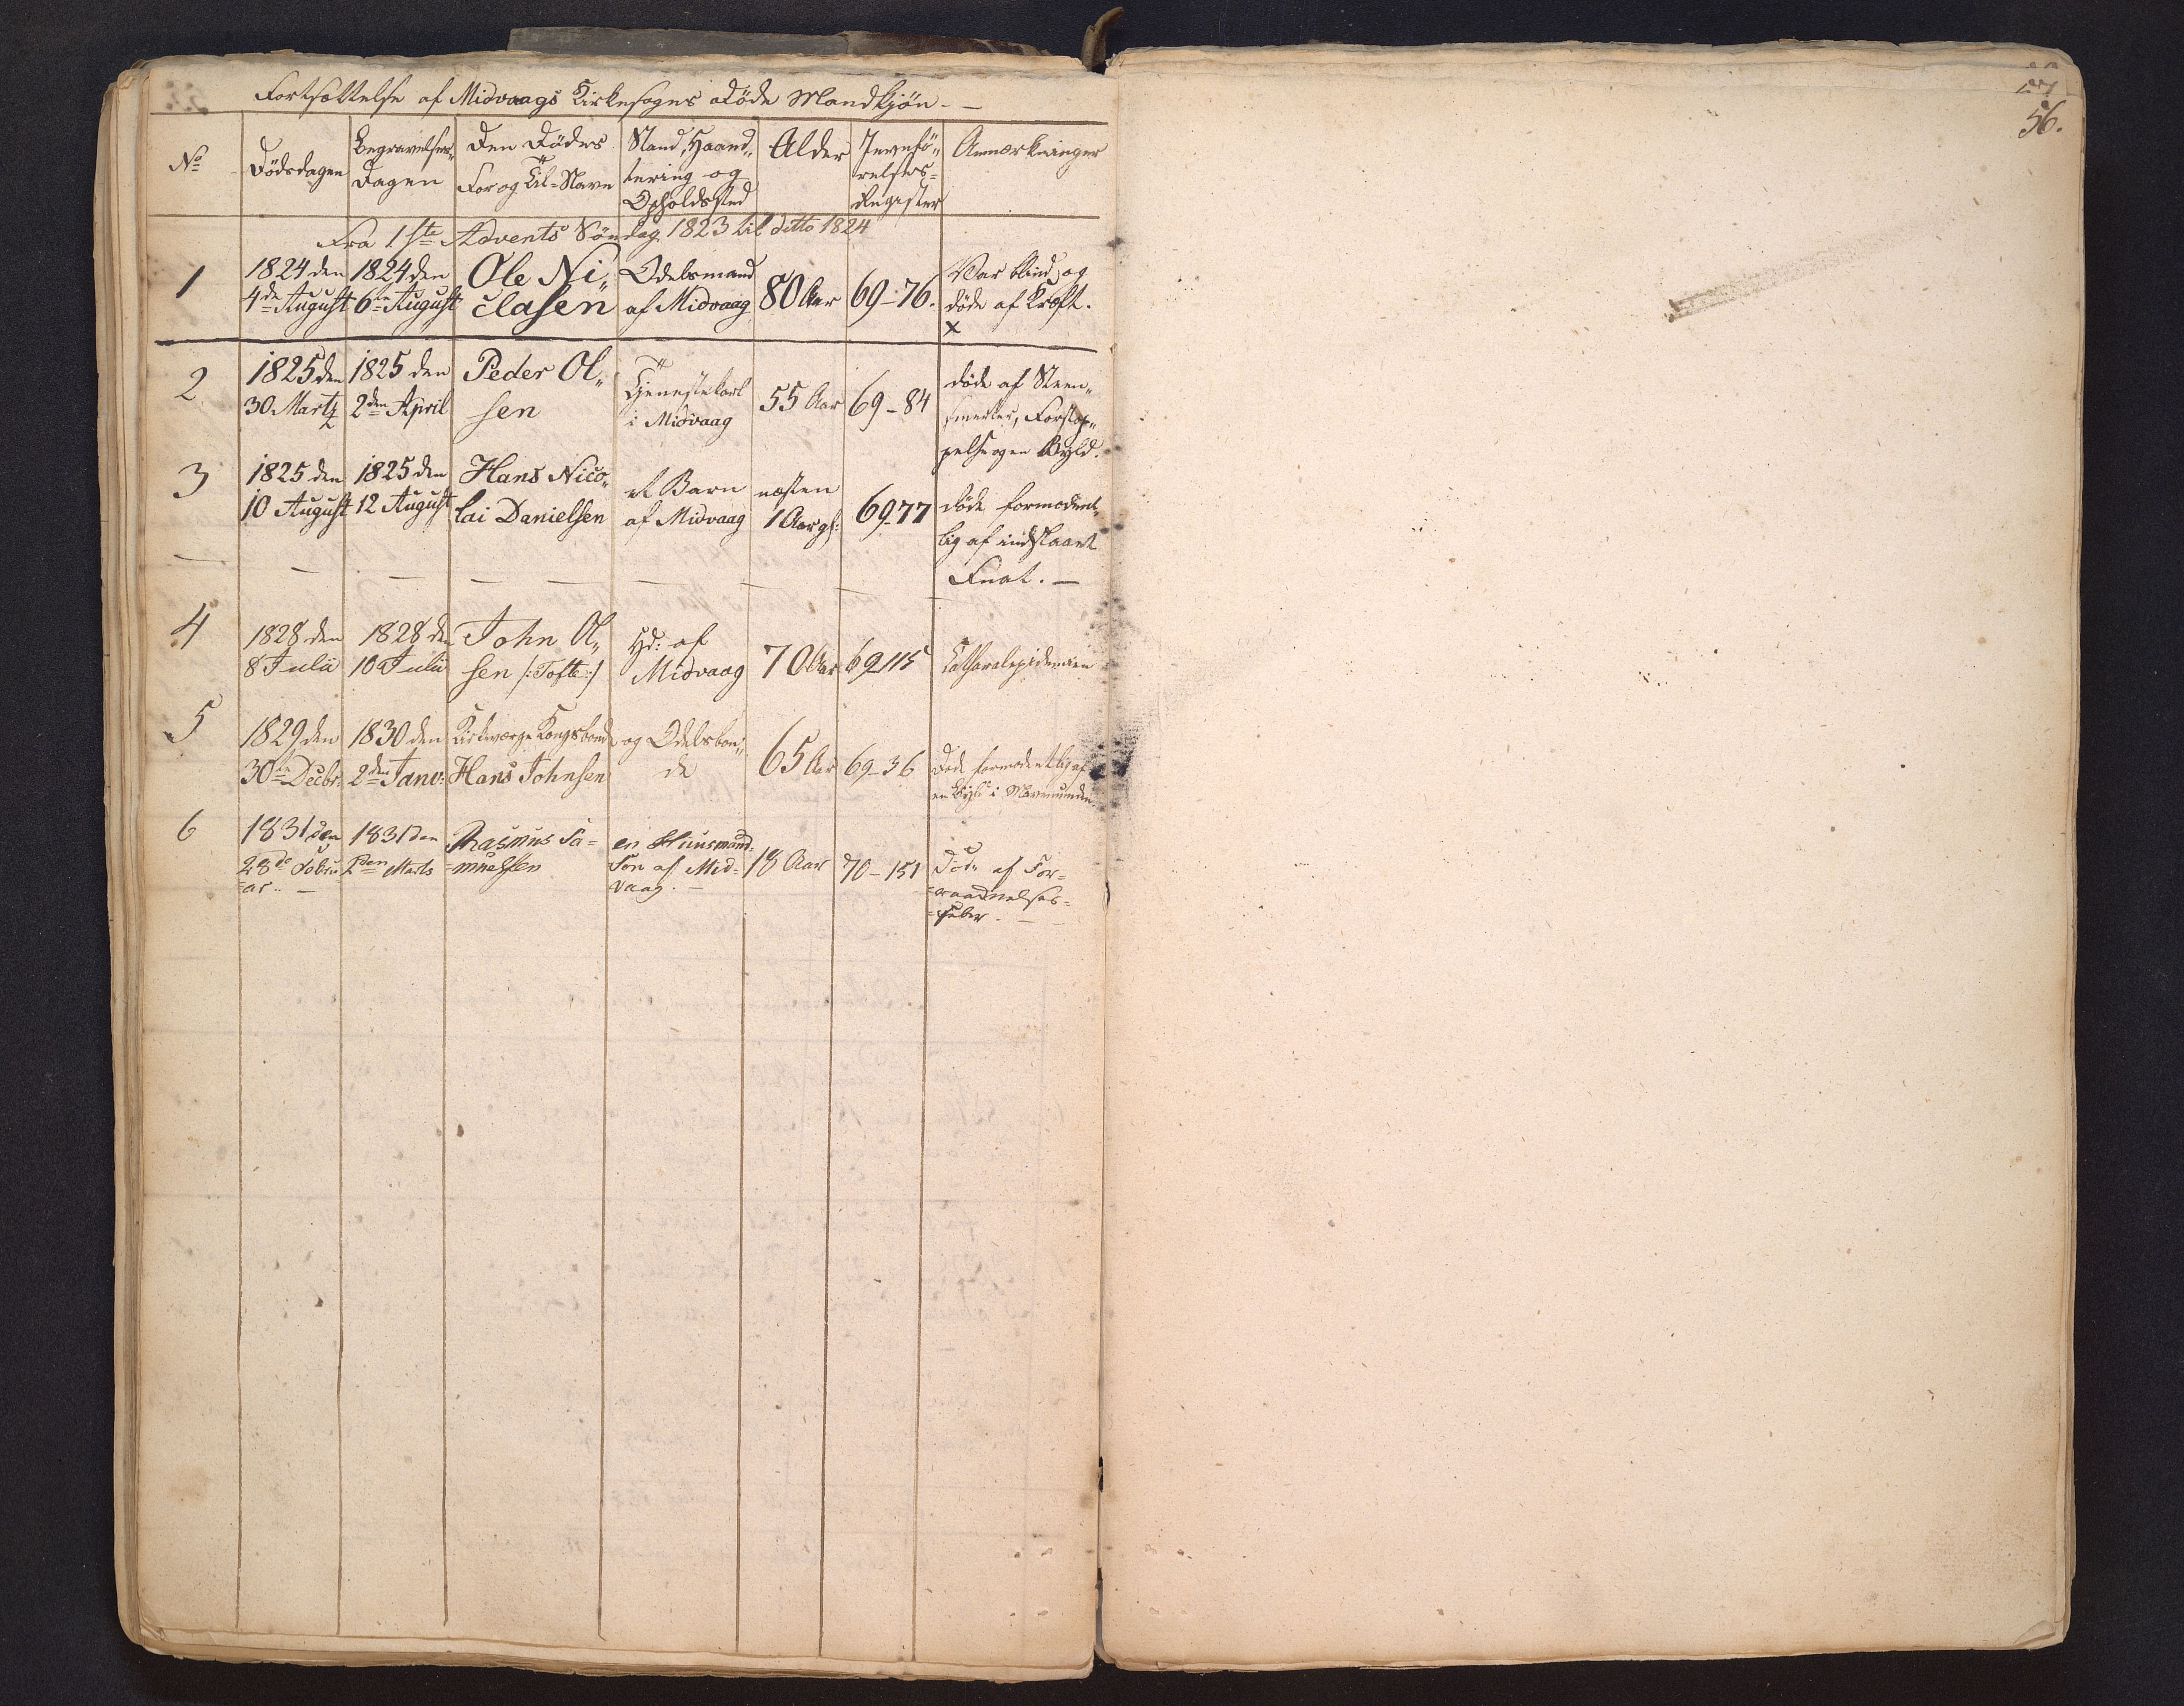 Fortsættelse af Midvaags Kirkesogns Døde Mandkjøn. —
No
Dødsdagen
Begravelses„
Dagen
Den Dødes
For og Til-Navn
Stand, Haand„
tering og
Opholdssted
Alder
Jevnfø„
relses-
Register
Anmærkninger
Fra 1ste Advents Søndag 1823 til ditto 1824
1
1824 den
4de August
1824 den
6te August
Ole Ni„
clasen
Odelsmand
af Midvaag
80 Aar
69-76.
Var blind, og
døde af Kræft.
x
2
1825 den
30 Martz
1825 den
2den April
Peder Ol„
sen
Tjenestekarl
i Midvaag
55 Aar
69-84
døde af Steen„
smerter, Forstop„
pelse og en Byld.
3
1825 den
10 August
1825 den
12 August
Hans Nico„
lai Danielsen
et Barn
af Midvaag
næsten
1 Aar gl:
69-77
døde formodent„
lig af indslaaet
Fnat. —
4
1828 den
8 Julii
1828 den
10 Julii
John Ol„
sen /:Tofte:/
Hd: af
Midvaag
70 Aar
69-115
Catharalepidemien
5
1829 den
30te Decbr:
1830 den
2den Janv:
Kirkeværge Kongsbonde
Hans Johnsen
og Odelsbon„
de
65 Aar
69-36
Døde formodentlig af
en Byld i Mavemunden.
6
1831 den
28de Febru
=ar. —
1831 den
2den Marts
Rasmus Sa=
=muelsen
en Huusmand-
Søn af Mid-
vaag. —
18 Aar
70-151
Døde af For=
=raadnelses=
=feber. —
56.